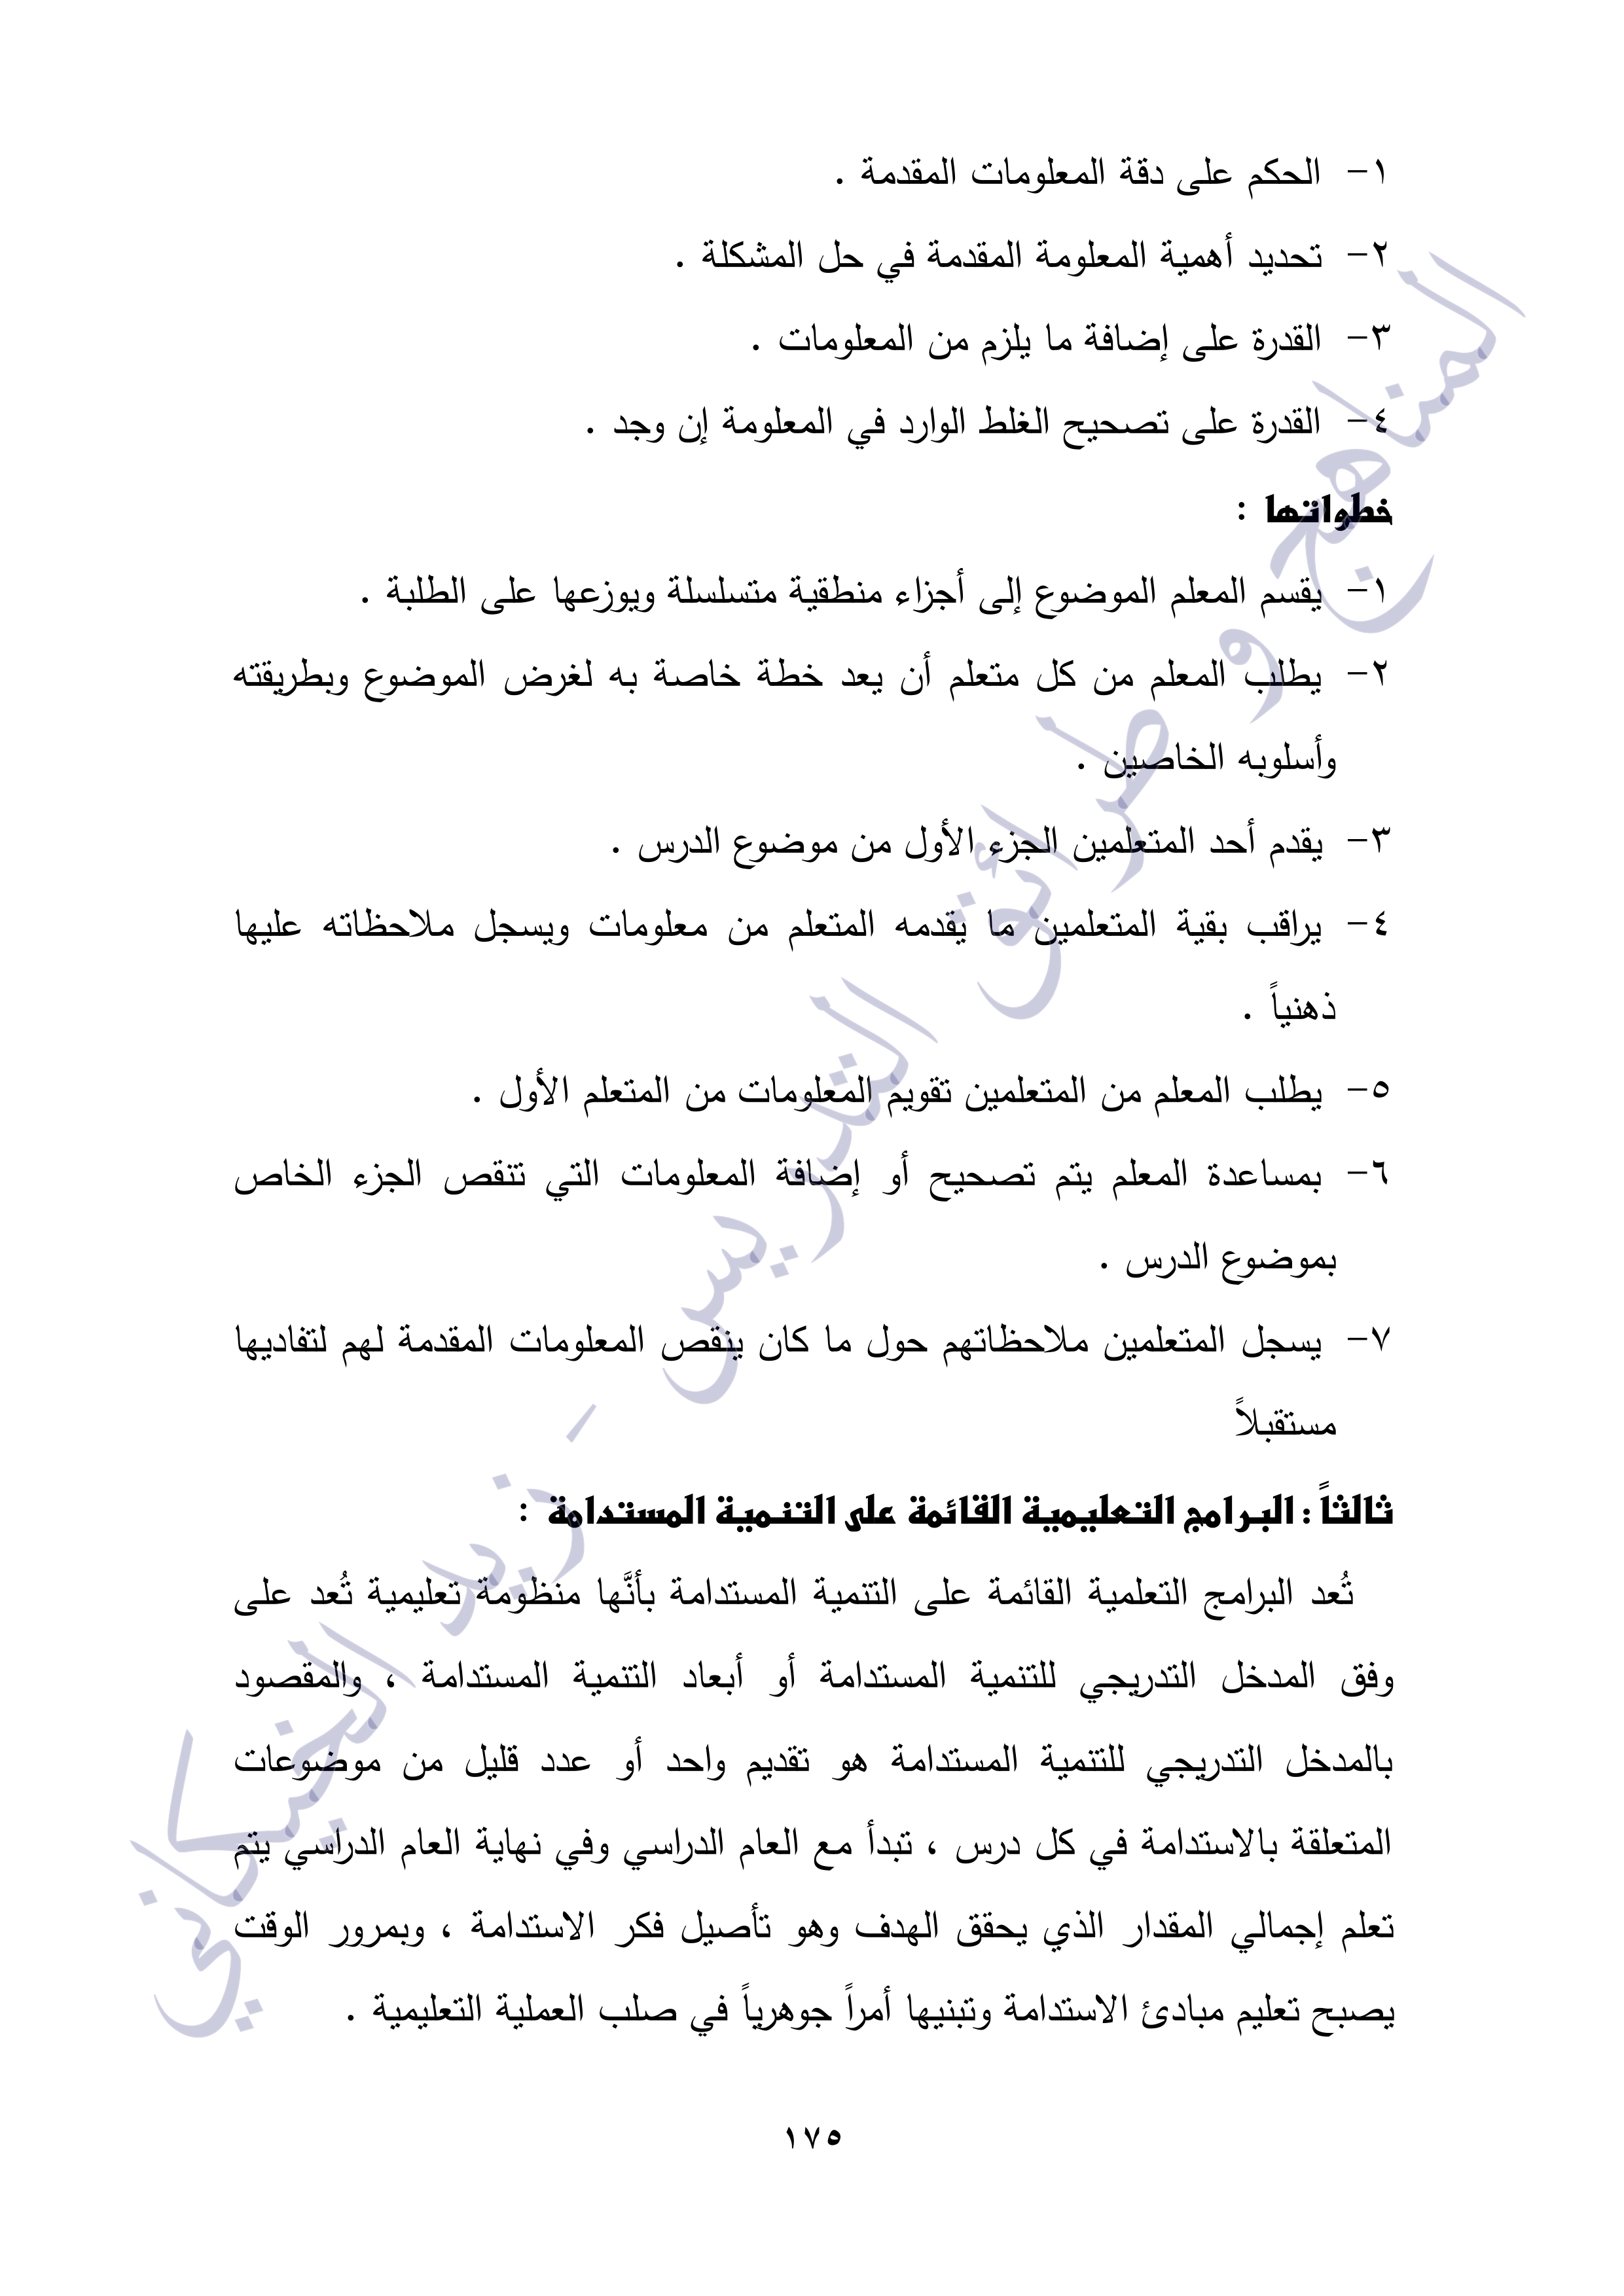 ١- الحكم على دقة المعلومات المقدمة .
٢- تحديد أهمية المعلومة المقدمة في حل المشكلة .
٣- القدرة على إضافة ما يلزم من المعلومات .
٤- القدرة على تصحيح الغلط الوارد في المعلومة إن وجد .
خطواتها :
١- يقسم المعلم الموضوع إلى أجزاء منطقية متسلسلة ويوزعها على الطلبة .
٢- يطلب المعلم من كل متعلم أن يعد خطة خاصة به لغرض الموضوع وبطريقته
وأسلوبه الخاصين .
٣- يقدم أحد المتعلمين الجزء الأول من موضوع الدرس .
٤- يراقب بقية المتعلمين ما يقدمه المتعلم من معلومات ويسجل ملاحظاته عليها
ذهنياً .
٥- يطلب المعلم من المتعلمين تقويم المعلومات من المتعلم الأول .
٦- بمساعدة المعلم يتم تصحيح أو إضافة المعلومات التي تنقص الجزء الخاص
بموضوع الدرس .
٧- يسجل المتعلمين ملاحظاتهم حول ما كان ينقص المعلومات المقدمة لهم لتفاديها
مستقبلاً
ثالثاً : البرامج التعليمية القائمة على التنمية المستدامة :
تُعد البرامج التعلمية القائمة على التنمية المستدامة بأنَّها منظومة تعليمية تُعد على
وفق المدخل التدريجي للتنمية المستدامة أو أبعاد التنمية المستدامة ، والمقصود
بالمدخل التدريجي للتنمية المستدامة هو تقديم واحد أو عدد قليل من موضوعات
المتعلقة بالاستدامة في كل درس ، تبدأ مع العام الدراسي وفي نهاية العام الدراسي يتم
تعلم إجمالي المقدار الذي يحقق الهدف وهو تأصيل فكر الاستدامة ، وبمرور الوقت
يصبح تعليم مبادئ الاستدامة وتبنيها أمراً جوهرياً في صلب العملية التعليمية .
١٧٥
المناهج و طرائق التدريس - زيد الخيكاني